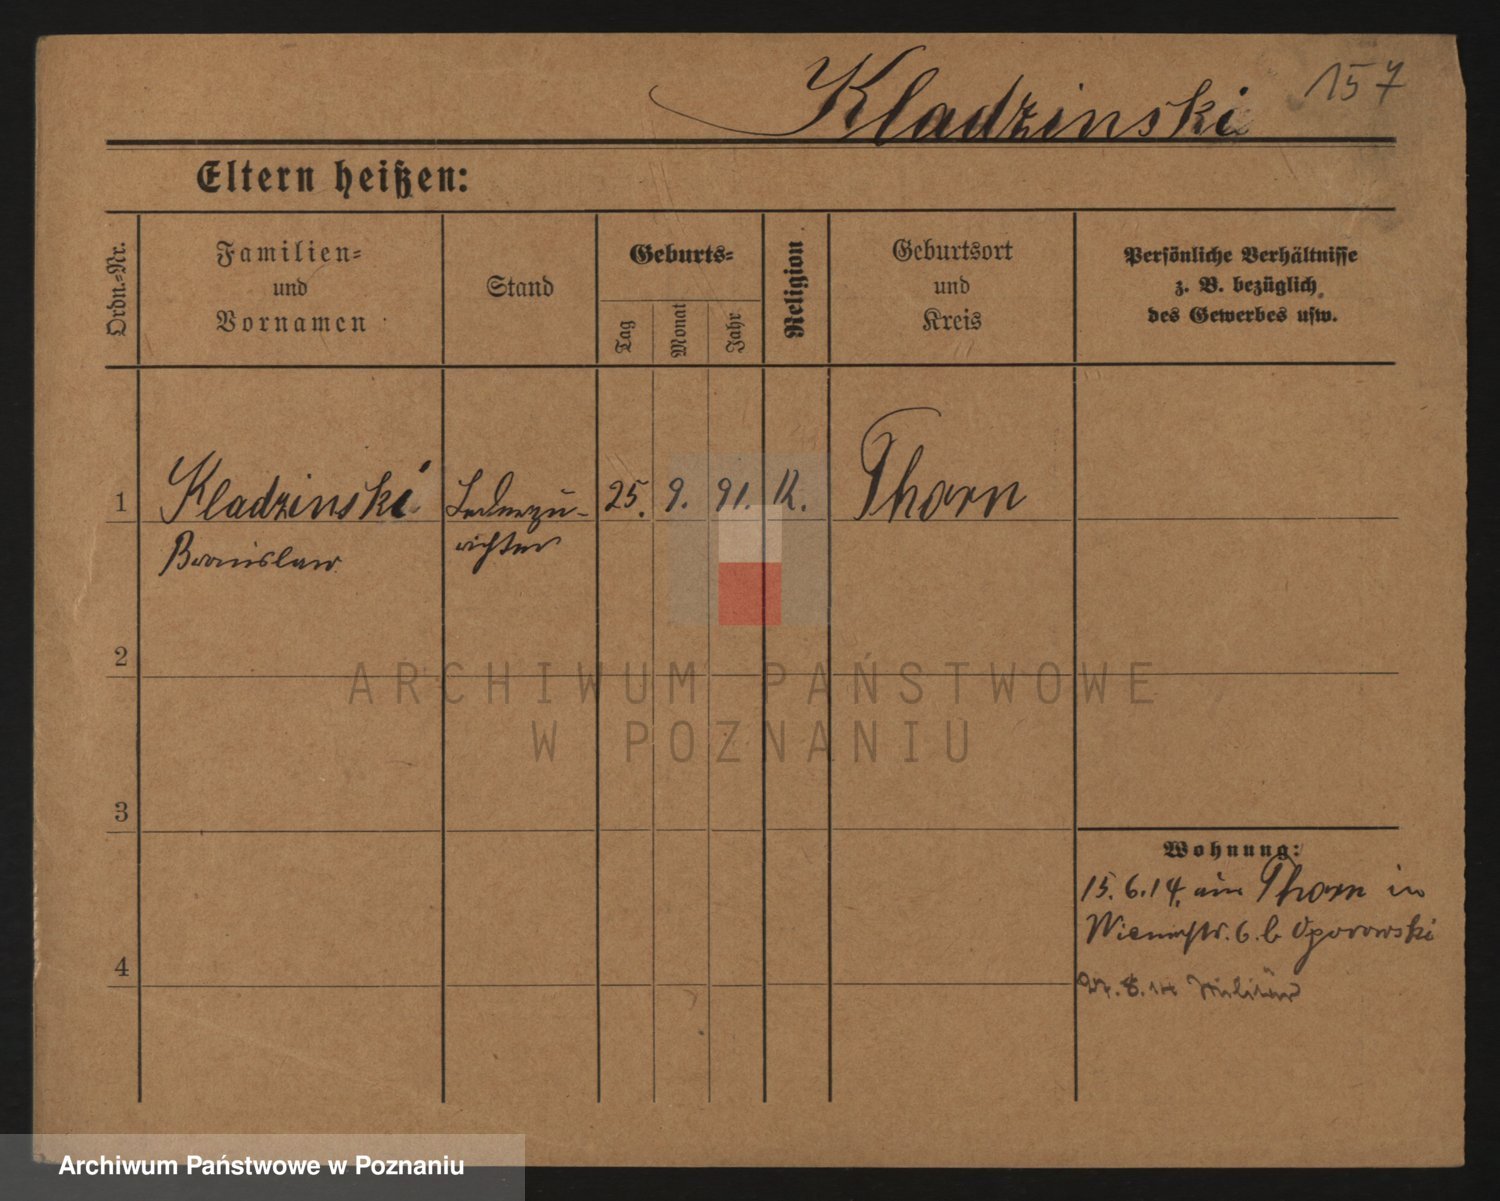 Kladzinski 157
Eltern heißen:
Ordn.-Nr.
Familien-
und
Vornamen
Stand
Geburts-
Tag
Monat
Jahr
Religion
Geburtsort
und
Kreis
Persönliche Verhältnisse
z. B. bezüglich
des Gewerbes usw.
1 Kladzinski Lederzu- 25. 9. 91. K. Thorn
Bronislaw richter
2
ARCHIWUM PAŃSTWOWE
W POZNANIU
3
Wohnung:
15.6.14. Thorn in
6. b Oporowski
4
8. 14 Militär
Archiwum Państwowe w Poznaniu